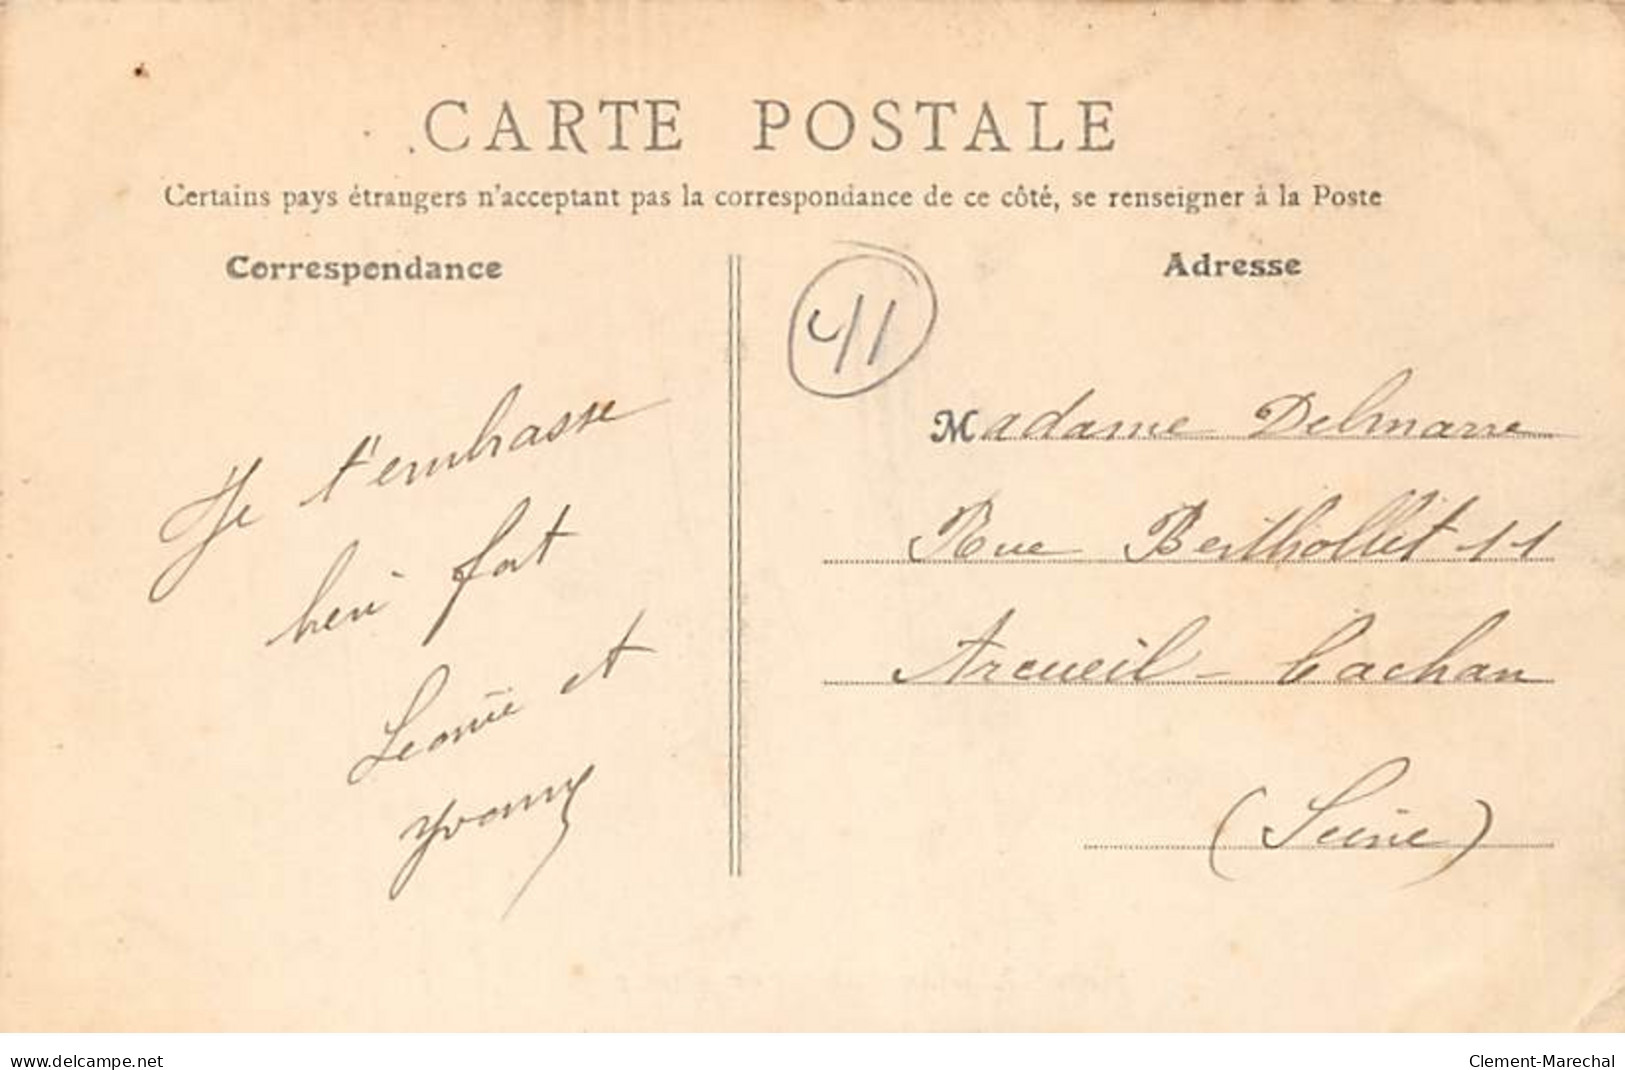 CARTE POSTALE
Certains pays étrangers n'acceptant pas la correspondance de ce côté, se renseigner à la Poste
Correspondance
Adresse
41
Je t'embrasse
bien fort
Léonie et
Yvonny
Madame Delmarre
Rue Berthollet 11
Arcueil - Cachan
(Seine)
www.delcampe.net
Clement-Marechal